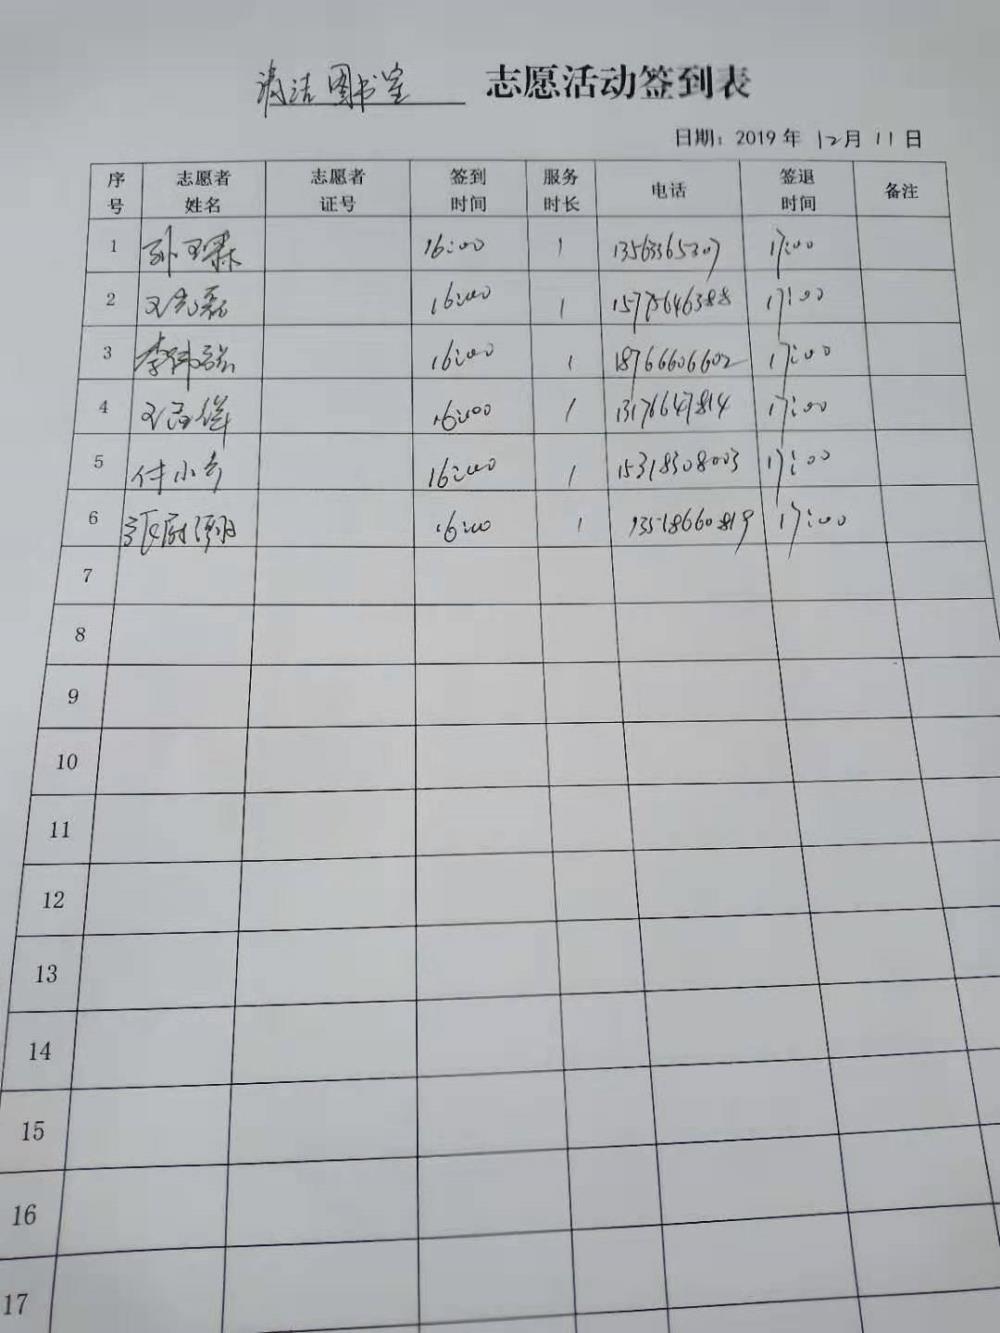 清洁图书室 志愿活动签到表
日期: 2019 年 12月 11日
序号 志愿者姓名 志愿者证号 签到时间 服务时长 电话 签退时间 备注
1 16:00 1 13563365307 17:00
2 16:00 1 17:00
3 李 16:00 1 18766606602 17:00
4 16:00 1 13176647814 17:00
5 付小 16:00 1 15318308003 17:00
6 16:00 1 17:00
7
8
9
10
11
12
13
14
15
16
17